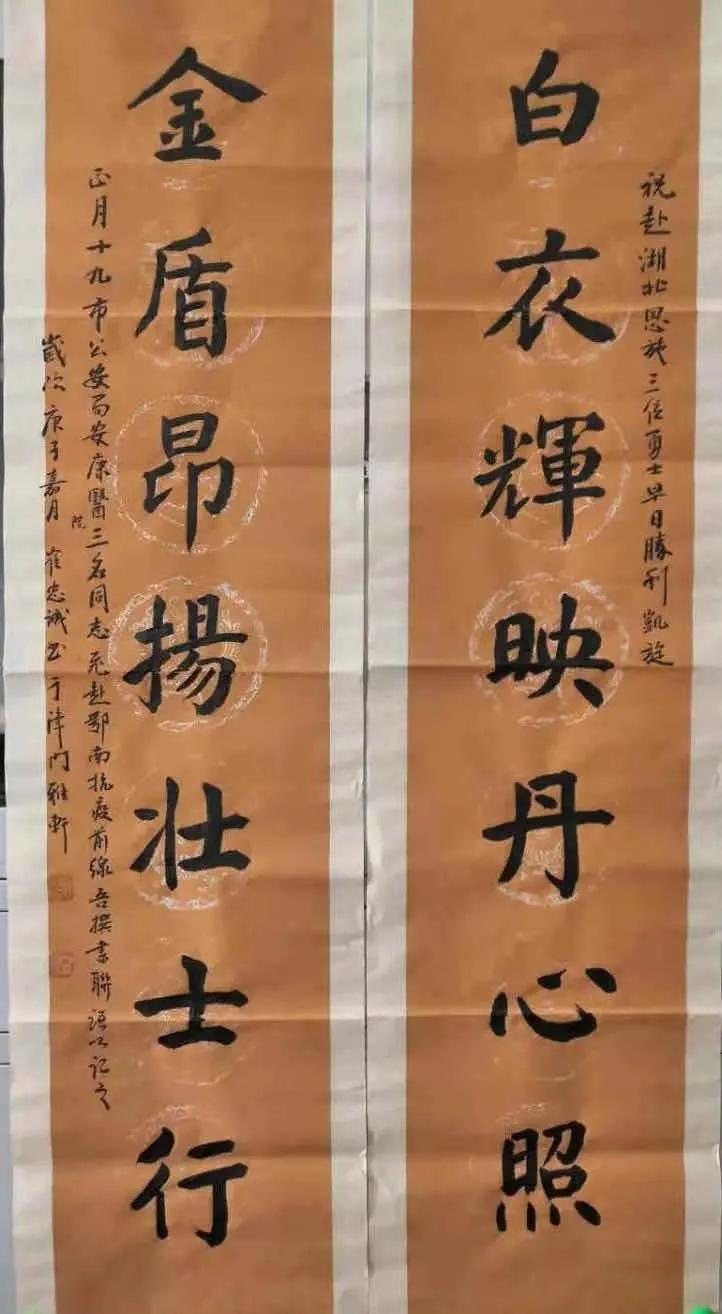 祝赴湖北恩施三位勇士早日勝利凱旋
白衣輝映丹心照
金盾昂揚壯士行
正月十九市公安局安康醫院三名同志死赴鄂南抗疫前線吾撰書聯語以記之
歲次庚子嘉月崔忠誠書于津門雅軒